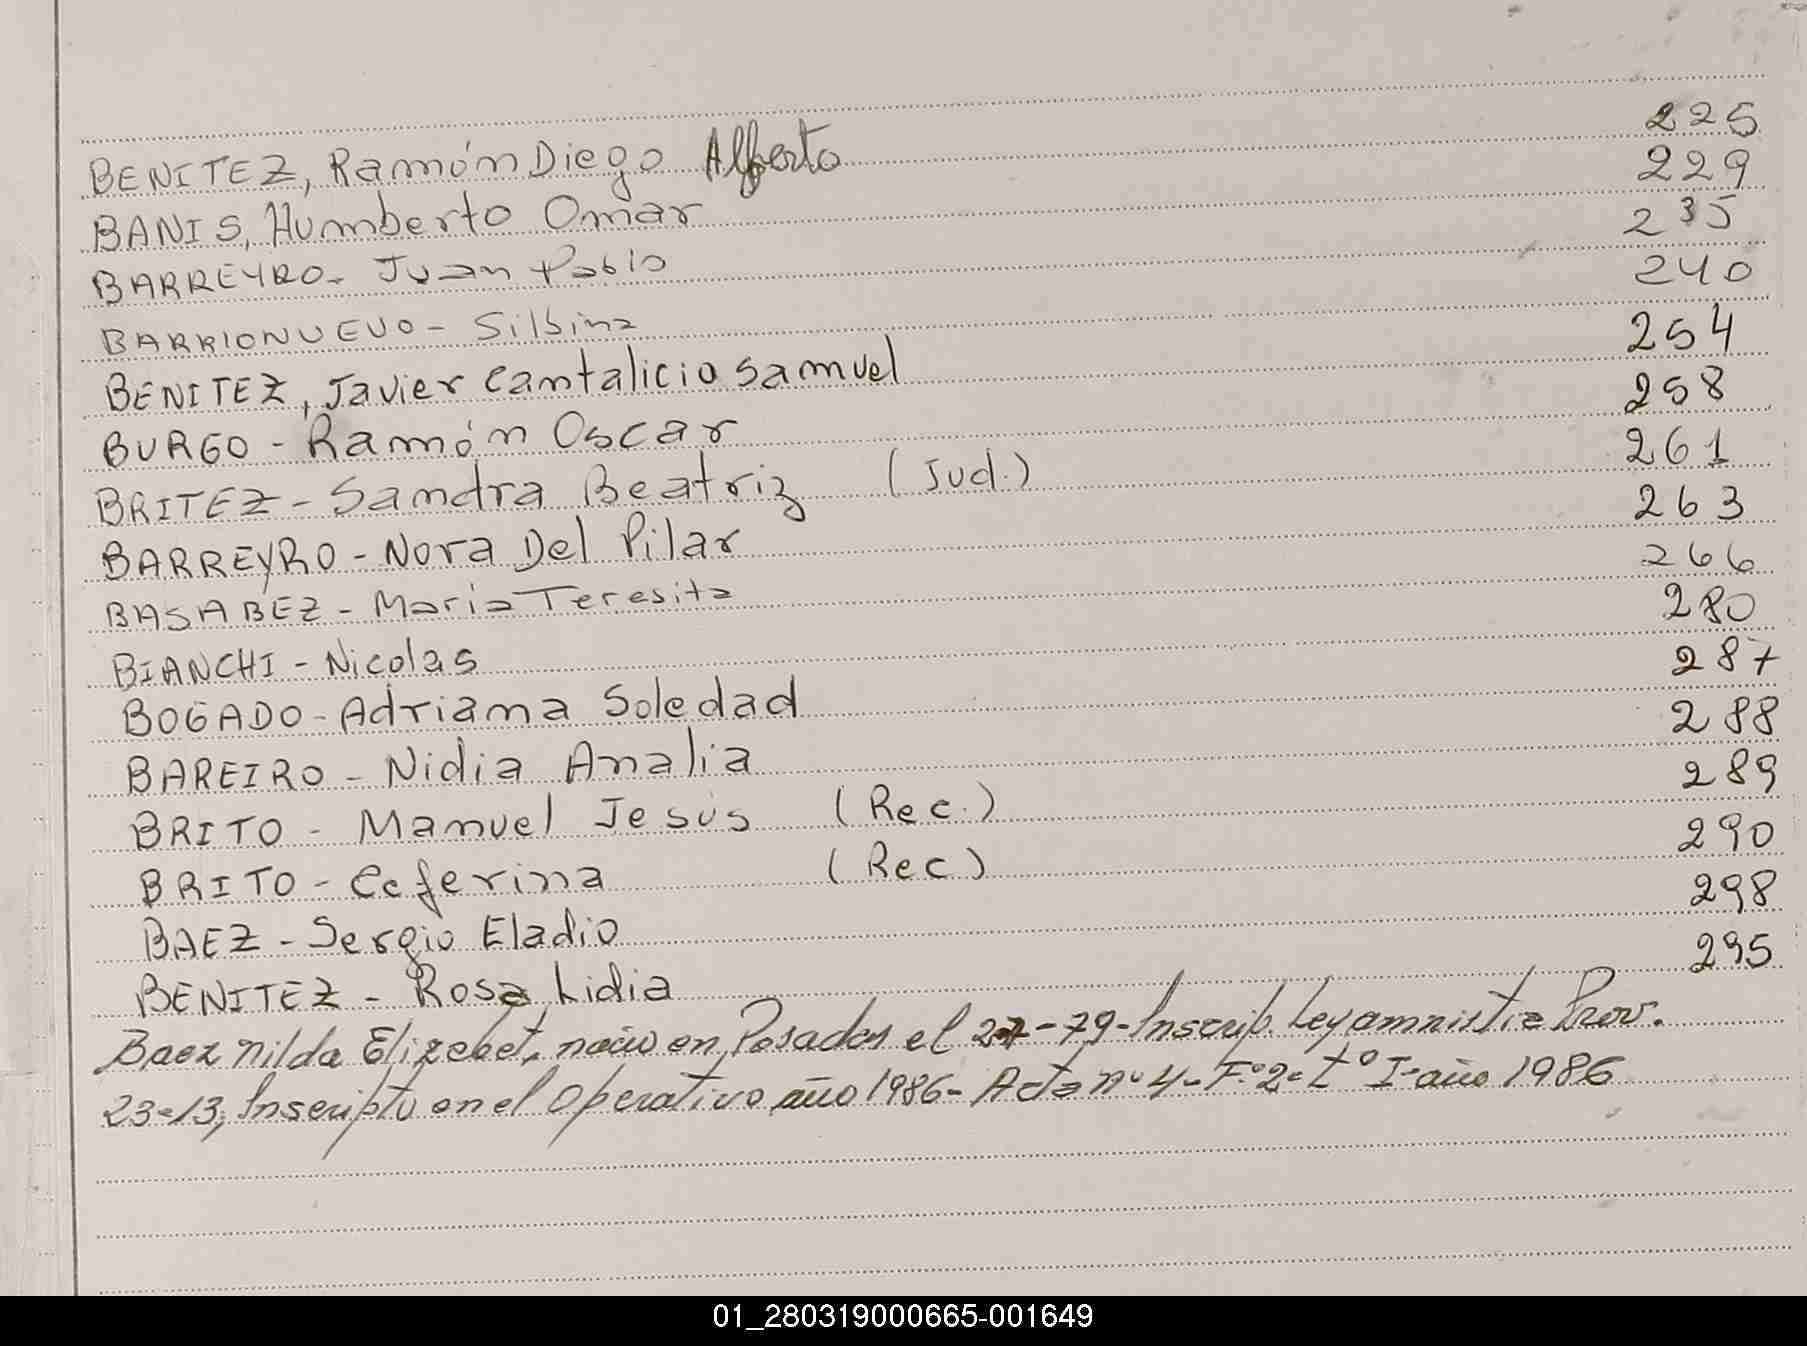 BENITEZ, Ramón Diego Alberto 225
BANIS, Humberto Omar 229
BARREYRO - Juan Pablo 235
BARRIONUEVO - Silbina 240
BENITEZ, Javier Cantalicio Samuel 254
BURGO - Ramón Oscar 258
BRITEZ - Sandra Beatriz (Jud.) 261
BARREYRO - Nora Del Pilar 263
BASABEZ - Maria Teresita 266
BIANCHI - Nicolas 280
BOGADO - Adriana Soledad 287
BAREIRO - Nidia Analia 288
BRITO - Manuel Jesús (Rec.) 289
BRITO - Ceferina (Rec) 290
BAEZ - Sergio Eladio 298
BENITEZ - Rosa Lidia 295
Baez nilda Elizebet, nació en Posadas el - 79 - Inscrip. Ley amnistia Prov.
23=13, Inscripto en el Operativo año 1986 - Acta nº 4 - Fº 2 = tº I - año 1986
01_280319000665-001649